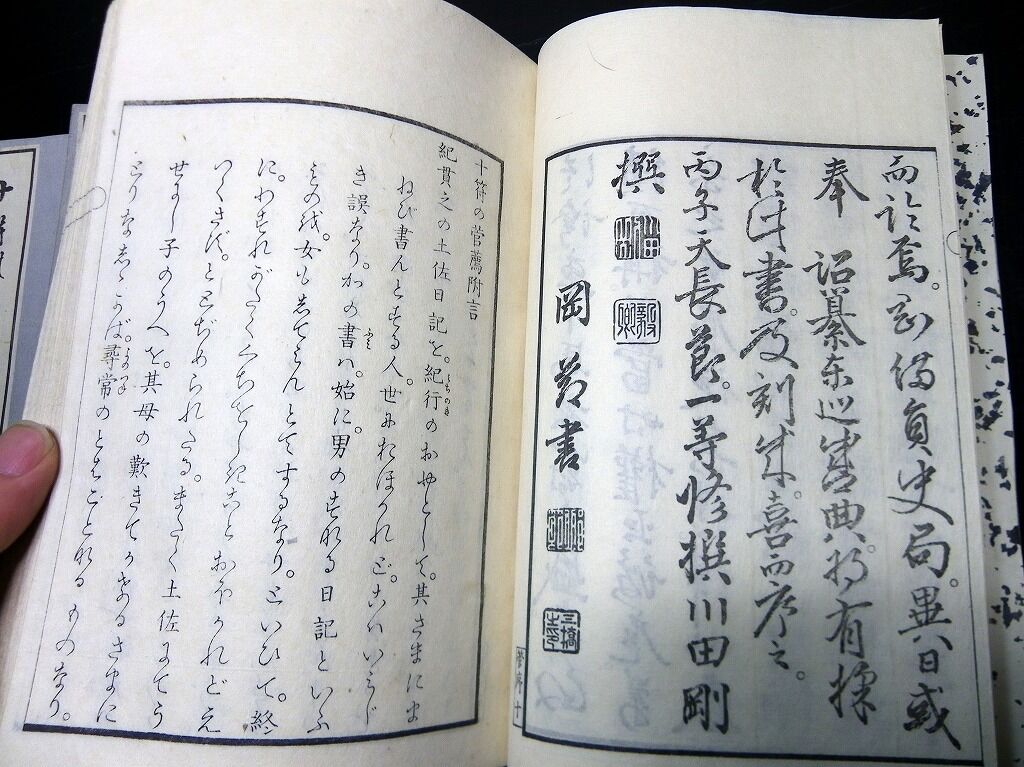 而焉。剛備員史局。異日或
奉 詔纂東巡盛典。将有採
於此書。及刻成。喜而序之。
丙子天長節。一等修撰川田剛
撰
毅卿
岡 書
菅序 十
十符の菅薦附言
紀貫之の土佐日記を。紀行のおやとして。其さまにま
ねび書んとする人。世におほかれど。こハいミじ
き誤なり。かの書ハ。始に。男のすなる日記といふ
ものを。女もしてミんとてするなり。といひて。終
に。わすれがたくくちをしきことおほかれど。え
つくさず。とぢめられたる。またく土佐にてう
せにし子のうへを。其母の歎きてかきたるさまに
とりなしゝかば。尋常のとはことなるものなり。